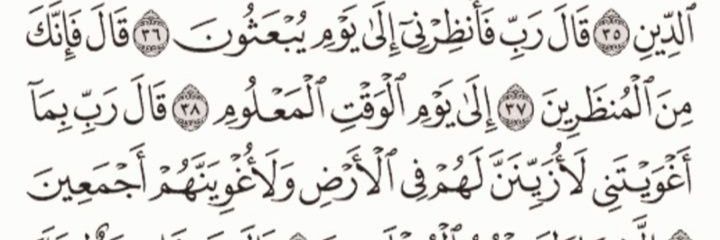 ٱلدِّينِ ٣٥ قَالَ رَبِّ فَأَنظِرْنِىٓ إِلَىٰ يَوْمِ يُبْعَثُونَ ٣٦ قَالَ فَإِنَّكَ
مِنَ ٱلْمُنظَرِينَ ٣٧ إِلَىٰ يَوْمِ ٱلْوَقْتِ ٱلْمَعْلُومِ ٣٨ قَالَ رَبِّ بِمَآ
أَغْوَيْتَنِى لَأُزَيِّنَنَّ لَهُمْ فِى ٱلْأَرْضِ وَلَأُغْوِيَنَّهُمْ أَجْمَعِينَ